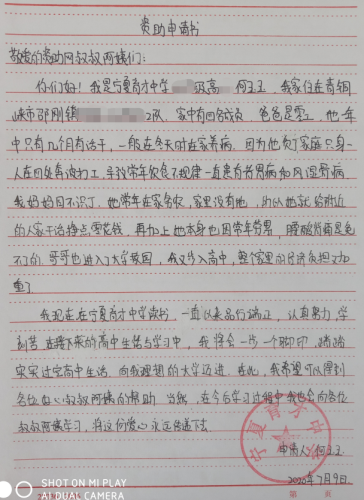 资助申请书
敬爱的资助网叔叔阿姨们:
你们好! 我是宁夏育才中学 级高 何玉玉, 我家住在青铜
峡市邵刚镇 2队, 家中有四名成员, 爸爸是零工, 他一年
中只有几个月有活干, 一般在冬天时在家养病, 因为他为了家庭只身一
人在四处奔波打工, 导致常年饮食不规律一直患有胃病和风湿骨病
我妈妈目不识丁, 她常年在家务农, 家里没有地, 所以他就给附近
的人家干活挣点零花钱, 再加上她本身也因常年劳累, 腰酸背痛是免
不了的, 哥哥也进入了大学校园, 我又步入高中, 整个家里的经济负担又加
重了
我现在在宁夏育才中学读书, 一直以来品行端正, 认真努力, 学
刻苦 在接下来的高中生活与学习中, 我将会一步一个脚印, 踏踏
实实过完高中生活, 向我理想的大学迈进, 在此, 我希望可以得到
各位爱心叔叔阿姨的帮助 当然, 在今后学习过程中我也会向各位
叔叔阿姨学习, 将这份爱心永远传递下去.
申请人: 何玉玉
2020年7月9日.
宁夏育才中学
SHOT ON MI PLAY
AI DUAL CAMERA
第 页